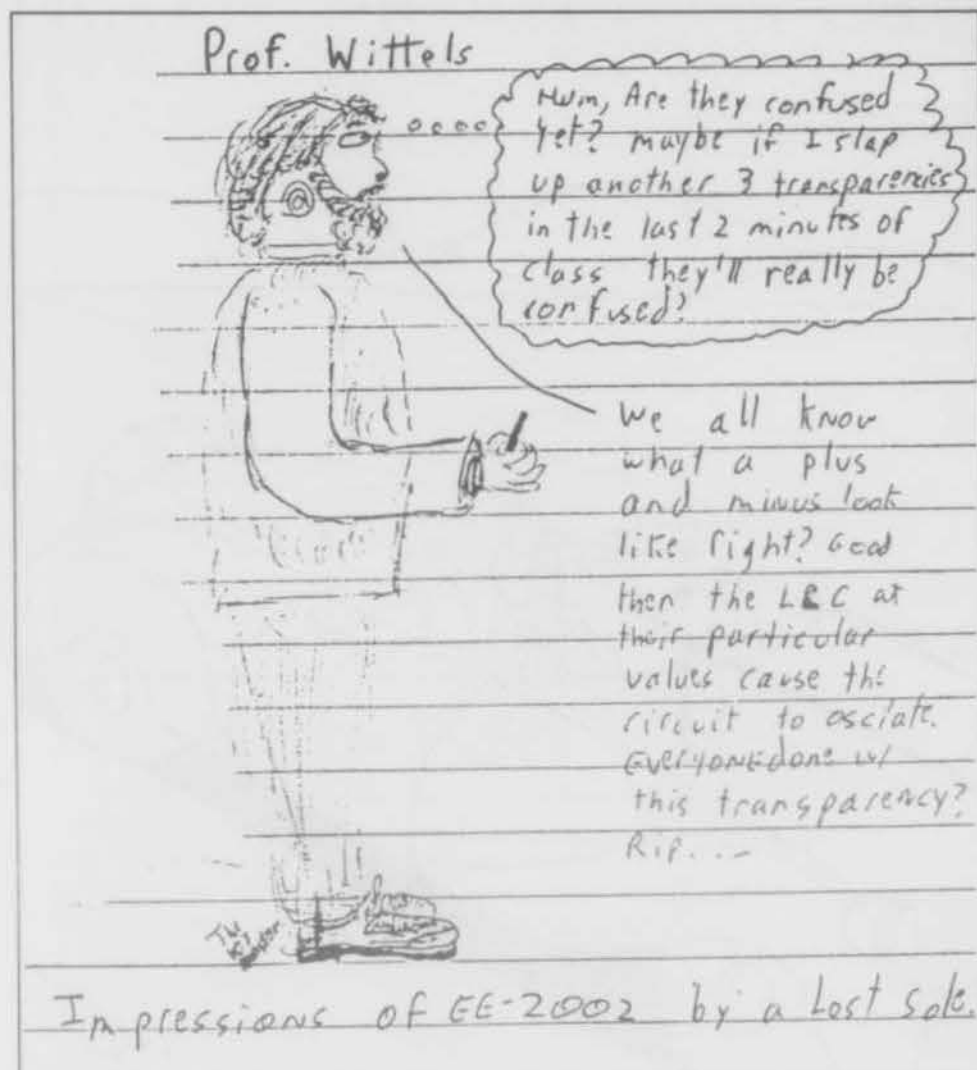 Prof. Wittels
Hum, Are they confused
Yet? maybe if I slap
up another 3 transparencies
in the last 2 minutes of
class they'll really be
confused?
We all know
what a plus
and minus look
like right? Good
then the LRC at
their particular
values cause the
circuit to osciate.
EVERYONE done w/
this transparency?
Rip...
The
Impressions of EE-2002 by a Lost sole.